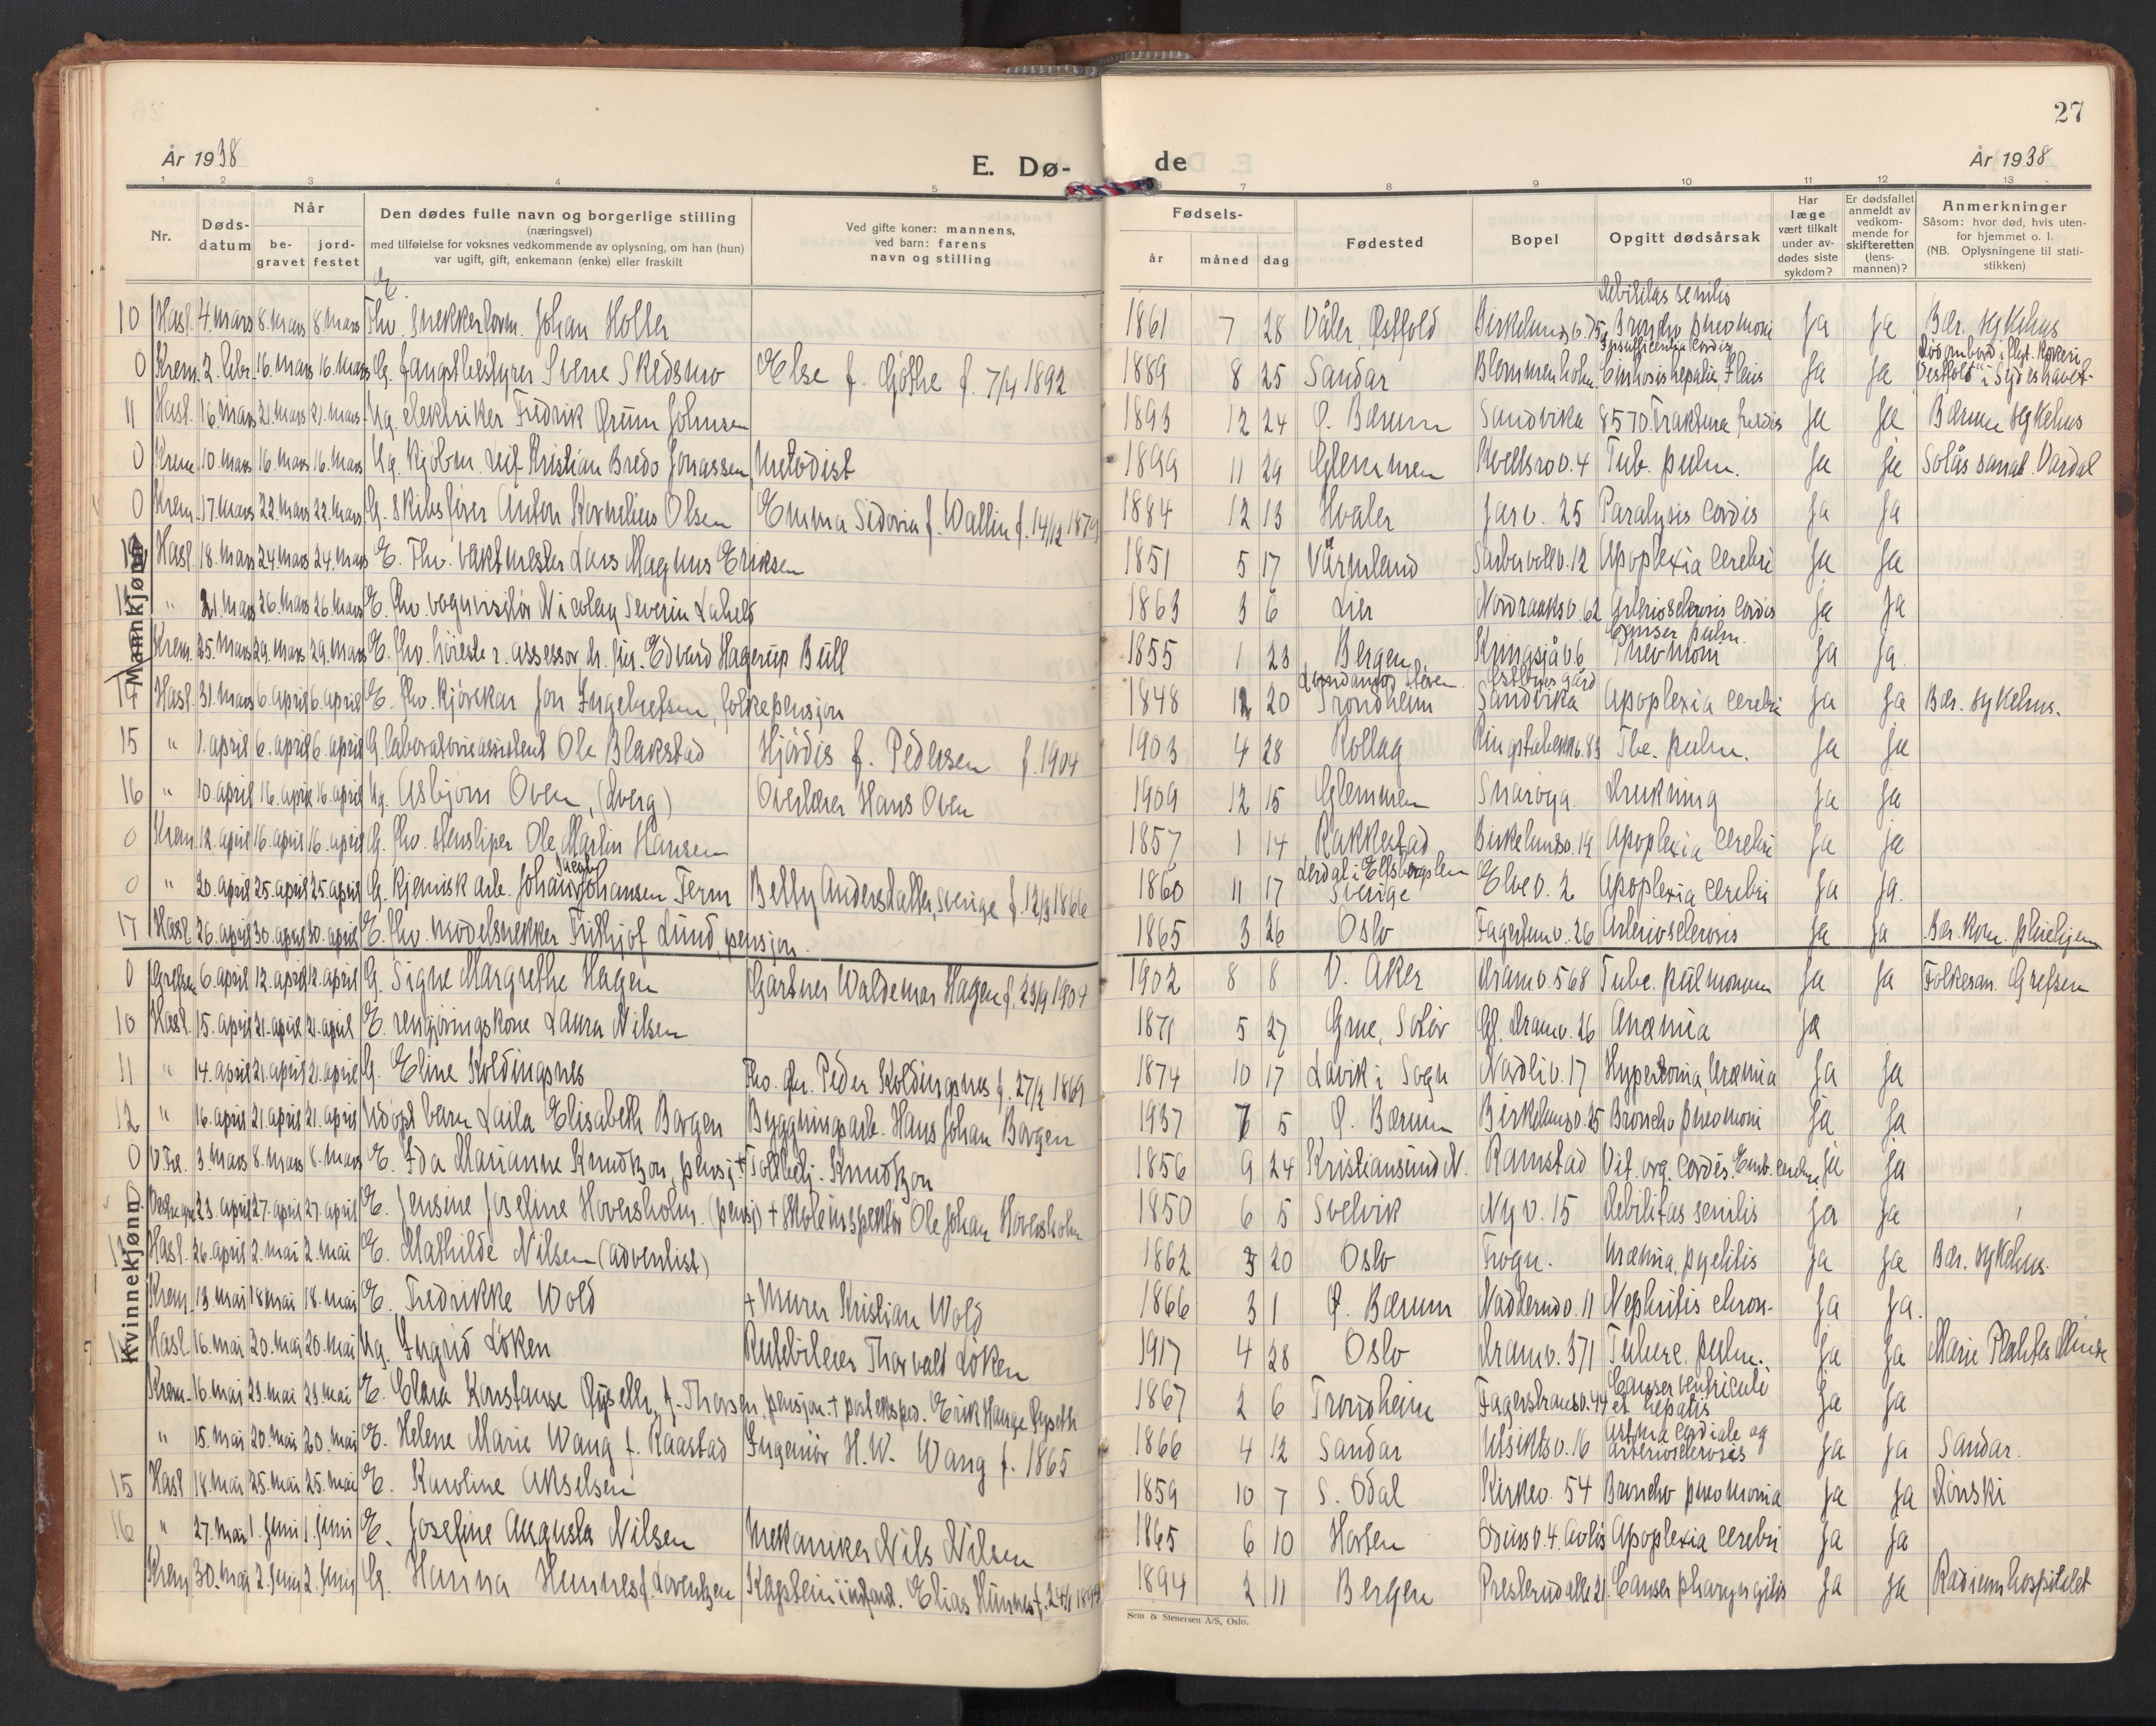 27
År 1938
E. Dø-
de
År 1938
1 2 3 4 5 6 7 8 9 10 11 12 13
Nr.
Døds-
datum
Når
be-
gravet
jord-
festet
Den dødes fulle navn og borgerlige stilling
(næringsvei)
med tilføielse for voksnes vedkommende av oplysning, om han (hun)
var ugift, gift, enkemann (enke) eller fraskilt
Ved gifte koner: mannens,
ved barn: farens
navn og stilling
Fødsels-
år måned dag
Fødested
Bopel
Opgitt dødsårsak
Har
læge
vært tilkalt
under av-
dødes siste
sykdom?
Er dødsfallet
anmeldt av
vedkom-
mende for
skifteretten
(lens-
mannen)?
Anmerkninger
Såsom: hvor død, hvis uten-
for hjemmet o. l.
(NB. Oplysningene til stati-
stikken)
Mannkjønn
10 Hasl. 4. mars 8. mars 8. mars E Fhv. snekkerform. Johan Holter 1861 7 28 Våler, Østfold Birkelundsv. 75 Debilitas senilis Broncho pneumoni Ja Ja Bær. sykehus
0 Krem. 2. febr. 16. mars 16. mars G. fangstbestyrer Sverre Skedsmo Else f. Göthe f. 7/4 1892 1889 8 25 Sandar Blommenholm Insufficientia cordis Cirrhosis hepatis, Ja Ja Død ombord i flyt. kokeri "Vestfold" i Sydishavet
11 Hasl. 16. mars 21. mars 21. mars Ug. elektriker Fredrik Ørum Johnsen 1893 12 24 Ø. Bærum Sandvika Ja Ja Bærum sykehus
0 Krem. 10. mars 16. mars 16. mars Ug. kjøbm. Leif Kristian Bredo Jonassen, Metodist 1899 11 29 Glemmen 4 Tub. pulm. Ja Ja Solås sanat. Vardal
0 Krem. 17. mars 22. mars 22. mars G. skibsfører Anton Kornelius Olsen Emma Sidovia f. Wallin f. 14/12 1879 1884 12 13 Hvaler Jarv. 25 Paralysis cordis Ja Ja
12 Hasl. 18. mars 24. mars 24. mars E. Fhv. vaktmester Lars Magnus Eriksen 1851 5 17 Värmland Sarbuvollv. 12 Apoplexia cerebri Ja Ja
" 21. mars 26. mars 26. mars E. fhv. vognvisitør Nicolay Severin Laheld 1863 3 6 Lier Nordraaksv. 62 Arteriosclerosis cordis Ja Ja
Krem. 25. mars 29. mars 29. mars E. fhv. høiester. assessor, dr. jur. Edvard Hagerup Bull 1855 1 23 Bergen Kringsjåv. 6 Cancer pulm. Pnevmoni Ja Ja
14 Hasl. 31. mars 6. april 6. april E. fhv. kjørekar Jon Ingebretsen, folkepensjon 1848 12 20 Trondheim Sandvika Apoplexia cerebri Ja Ja Bær. sykehus.
15 " 1. april 6. april 6. april G. laboratorieassistent Ole Blakstad Hjördis f. Pedersen f. 1904 1903 4 28 Rollag Ringstabekkv. 83 Tbc. pulm. Ja Ja
16 " 10. april 16. april 16. april Ug. Asbjørn Oven, (dverg) Overlærer Hans Oven 1909 12 15 Glemmen Snarøya. Drukning Ja Ja
0 Krem. 12. april 16. april 16. april G. fhv. stensliper Ole Martin Hansen 1857 1 14 Rakkestad Birkelundsv. 19 Apoplexia cerebri Ja Ja
0 " 20. april 25. april 25. april G. kjemisk arb. Johan Jacob Johansen Ferm Betty Sverige f. 12/3 1866 1860 11 17 Lerdal i Elfsborgslen Sverige Elvev. 2 Apoplexia cerebri Ja Ja.
17 Hasl. 26. april 30. april 30. april E. fhv. modelsnekker Frithjof Lund, pensjon. 1865 3 26 Oslo Fagertunv. 26 Arteriosclerosis Ja Ja Bær. kom. pleiehjem
Kvinnekjønn
0 Grefsen 6. april 12. april 12. april G. Signe Margrethe Hagen Gartner Waldemar Hagen f. 23/9 1904 1902 8 8 V. Aker Dramv. 568 Tubc. pulmonum Ja Ja Folkesan. Grefsen
10 Hasl. 15. april 21. april 21. april E. rengjøringskone Laura Nilsen 1871 5 27 Grue, Solør Gl. Dramv. 26 Anæmia Ja
11 " 14. april 21. april 21. april G. Eline Koldingsnes Fhv. Peder Koldingsnes f. 27/2 1869 1874 10 17 Lavik i Sogn Nordliv. 17 Hypertonia Uræmia Ja Ja
12 " 16. april 21. april 21. april Udöpt barn Laila Elisabeth Borgen Bygningsarb. Hans Johan Borgen 1937 7 5 Ø. Bærum Birkelundsv. 25 Broncho pneumoni Ja Ja
0 V. Fre. 3. mars 8. mars 8. mars E. Ida Marianne Knudtzon, pensj. + Tollbetj. Knudtzon 1856 9 24 Kristiansund N. Ramstad Vit. org. cordis. Emb. cerebri Ja Ja
23. april 27. april 27. april E. Jensine Josefine Hoversholm. (pensj) + Skoleinspektør Ole Johan Hoversholm 1850 6 5 Svelvik Ny v. 15 Debilitas senilis Ja Ja
Hasl. 26. april 2. mai 2. mai E. Mathilde Nilsen (adventist) 1862 3 20 Oslo Trogn. Uræmia, pyelitis Ja Ja Bær. sykehus.
Krem. 13. mai 18 mai 18. mai E. Fredrikke Wold + Murer Kristian Wold 1866 3 1 Ø. Bærum Nadderudv. 11 Nephritis chron. Ja Ja.
Hasl. 16. mai 20. mai 20. mai Ug. Ingrid Løken Rutebileier Thorvald Løken 1917 4 28 Oslo Dramv. 371 Tuberc. pulm. Ja Ja Marie Plahtes Minde
Krem. 16. mai 23. mai 23. mai E. Clara Konstanse Ryseth, f. Thorsen, pensjon. + posteksped. Erik Hauge Ryseth 1867 2 6 Trondheim Fagerstrandv. 44 Cancer ventriculi et hepatis Ja Ja
" 15. mai 20. mai 20. mai E. Helene Marie Wang f. Raastad Ingeniör H. W. Wang f. 1865 1866 4 12 Sandar Utsiktsv. 16 Astma cordiale og arteriosclerosis Ja Ja Sandar.
15 Hasl. 18. mai 25. mai 25. mai E. Karoline Akselsen 1859 10 7 S. Odal Kirkev. 54 Broncho pneumonia Ja Ja Dønski
16 " 27. mai 1. juni 1. juni E. Josefine Augusta Nilsen Mekaniker Nils Nilsen 1865 6 10 Horten Odinsv. 4. Avløs Apoplexia cerebri Ja Ja
Krem. 30. mai 2. juni 2. juni G. Hanna Hunnes f. Lorentzen Kaptein i infant. Elias Hunnes f. 1894 2 11 Bergen Presterud alle 21. Cancer pharyngitis Ja Ja Radiumhospitalet
Sem & Stenersen A/S, Oslo.